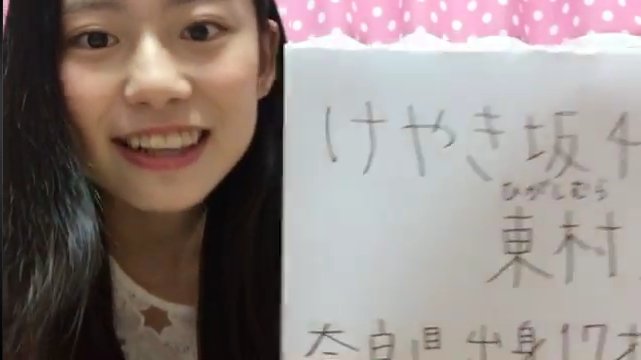 けやき坂4
ひがしむら
東村
奈良県出身17才